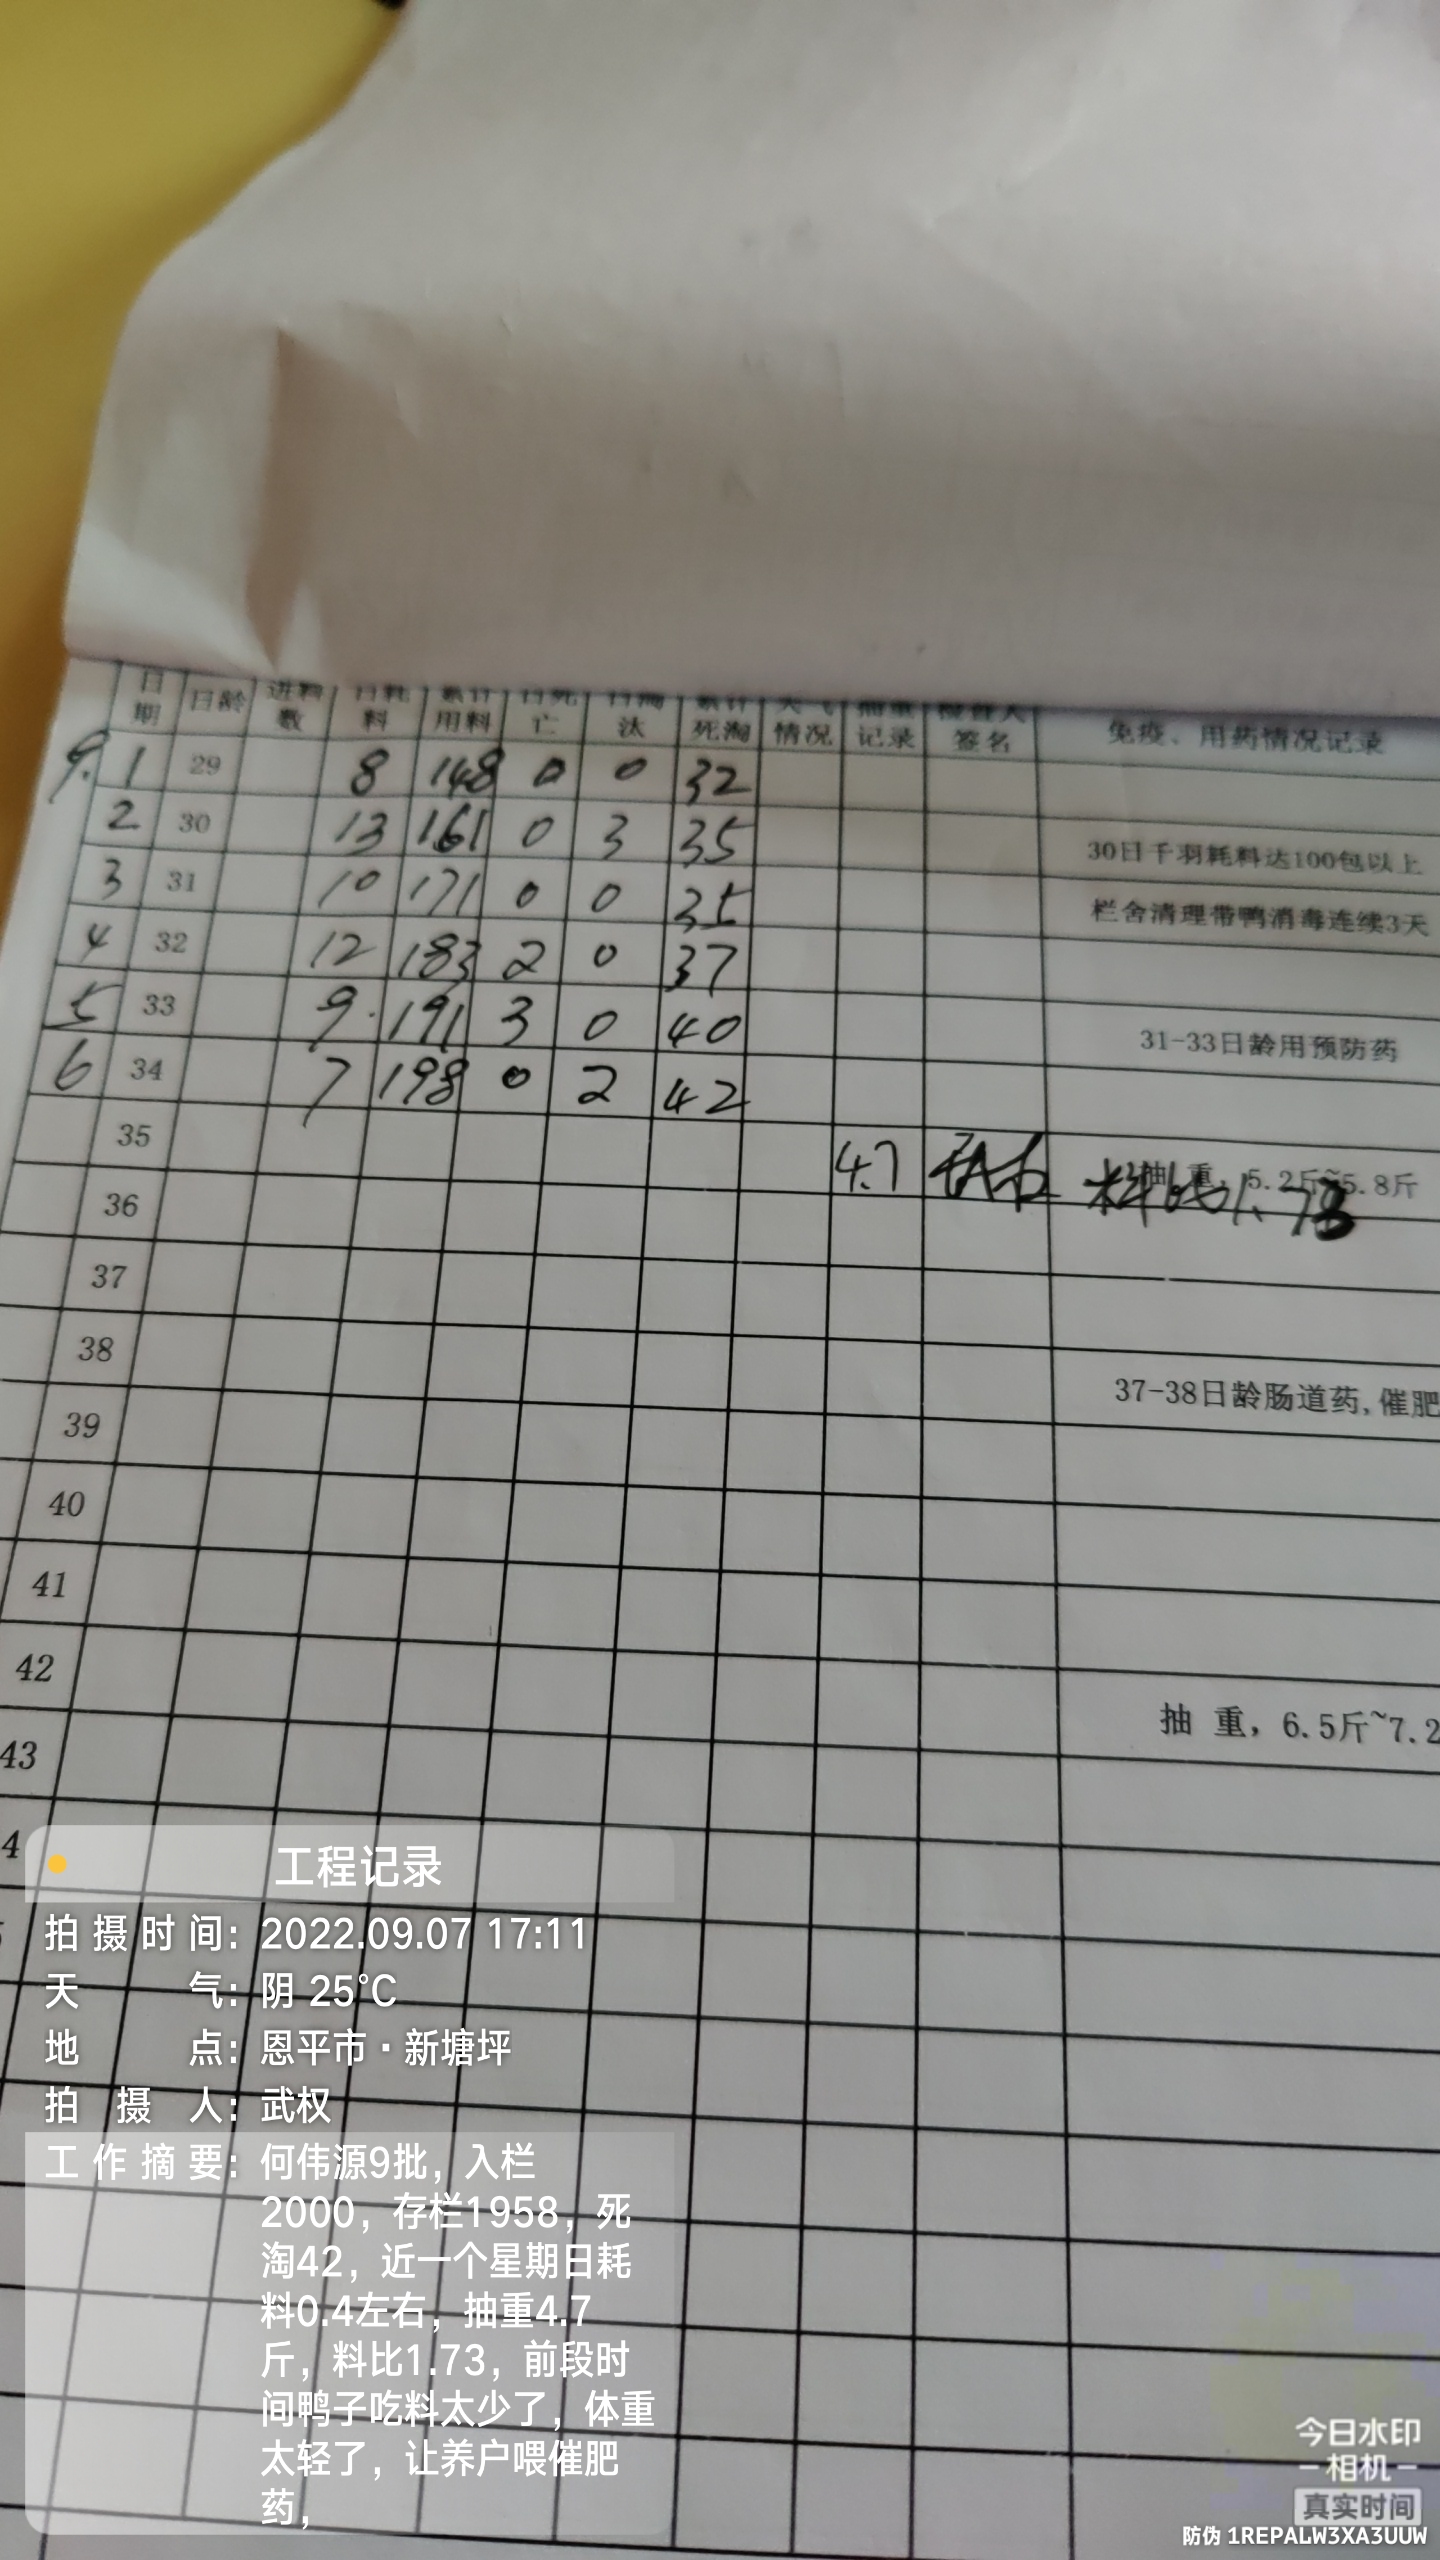 日期 日龄 进料数 日耗料 累计用料 日死亡 日淘汰 累计死淘 天气情况 抽重记录 检查人签名 免疫、用药情况记录
9.1 29 8 148 0 0 32
2 30 13 161 0 3 35 30日千羽耗料达100包以上
3 31 10 171 0 0 35 栏舍清理带鸭消毒连续3天
4 32 12 183 2 0 37
5 33 9. 191 3 0 40 31-33日龄用预防药
6 34 7 198 0 2 42
35 4.7 武权 抽 重，5.2斤~5.8斤
料比1.73
36
37
38 37-38日龄肠道药,催肥
39
40
41
42 抽 重，6.5斤~7.2
43
4
工程记录
拍摄时间：2022.09.07 17:11
天气：阴 25°C
地点：恩平市·新塘坪
拍摄人：武权
工作摘要：何伟源9批，入栏
2000，存栏1958，死
淘42，近一个星期日耗
料0.4左右，抽重4.7
斤，料比1.73，前段时
间鸭子吃料太少了，体重
太轻了，让养户喂催肥
药，
今日水印
相机
真实时间
防伪 1REPALW3XA3UUW